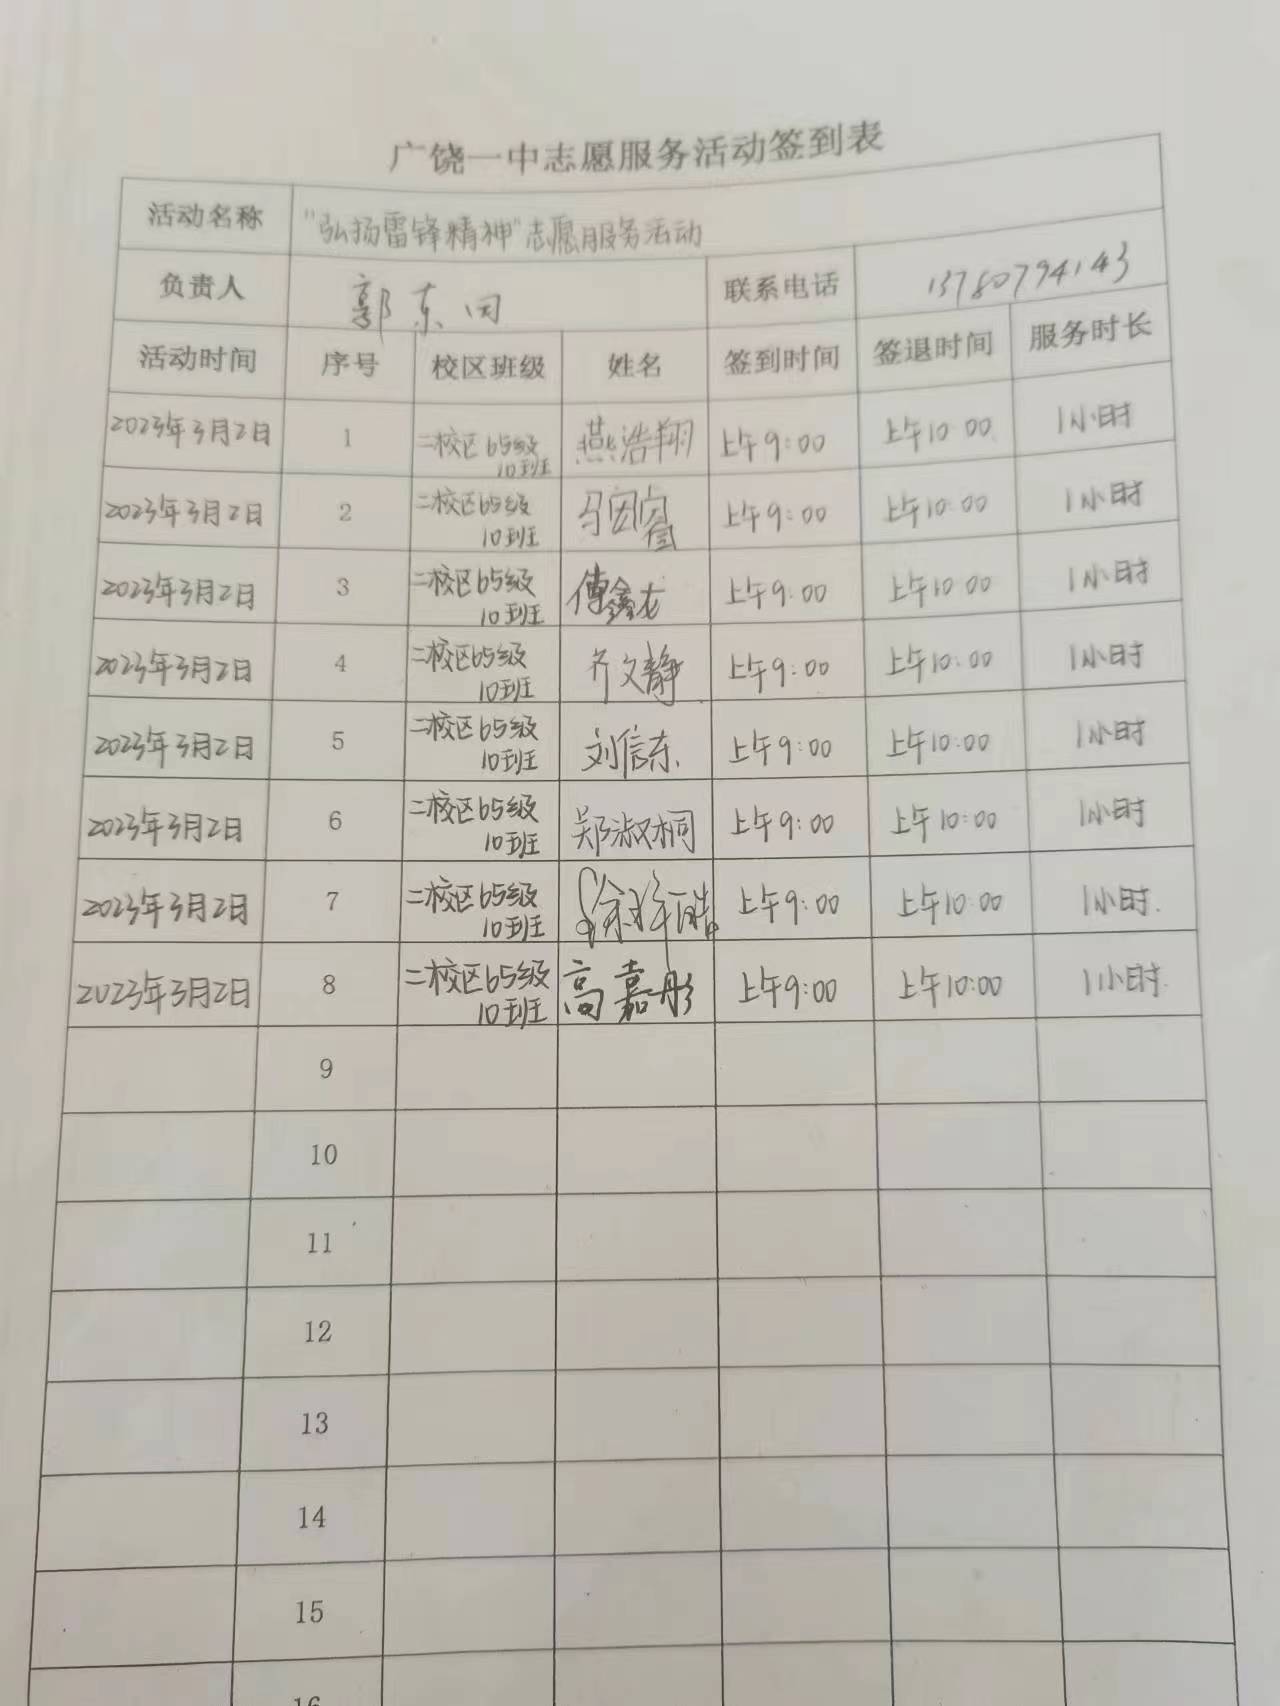 广饶一中志愿服务活动签到表
活动名称 "弘扬雷锋精神"志愿服务活动
负责人 郭东 联系电话 13780794143
活动时间 序号 校区班级 姓名 签到时间 签退时间 服务时长
2023年3月2日 1 二校区65级10班 燕浩翔 上午9:00 上午10:00 1小时
2023年3月2日 2 二校区65级10班 马因睿 上午9:00 上午10:00 1小时
2023年3月2日 3 二校区65级10班 傅鑫龙 上午9:00 上午10:00 1小时
2023年3月2日 4 二校区65级10班 齐文静 上午9:00 上午10:00 1小时
2023年3月2日 5 二校区65级10班 刘信东 上午9:00 上午10:00 1小时
2023年3月2日 6 二校区65级10班 郑淑桐 上午9:00 上午10:00 1小时
2023年3月2日 7 二校区65级10班 上午9:00 上午10:00 1小时.
2023年3月2日 8 二校区65级10班 高嘉彤 上午9:00 上午10:00 1小时.
9
10
11
12
13
14
15
16